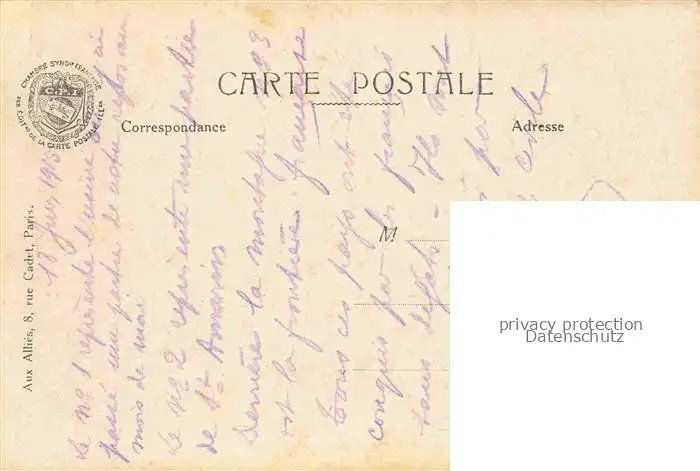 CHAMBRE SYND^LE FRANÇAISE
C.P.I
DES EDIT^RS DE LA CARTE POSTALE ILL^EE
CARTE POSTALE
Correspondance
Adresse
M
Aux Alliés, 8, rue Cadet, Paris.
18 1915
Le No 1 représente l'usine où j'ai
passé une partie de notre repos au
mois de mai
Le No 2 représente une partie
de St Amarin
Derrière la montagne No 3
est la frontière française
Tous ces pays ont été
conquis par les français
sans dégâts - Ils ont
par
privacy protection
Datenschutz